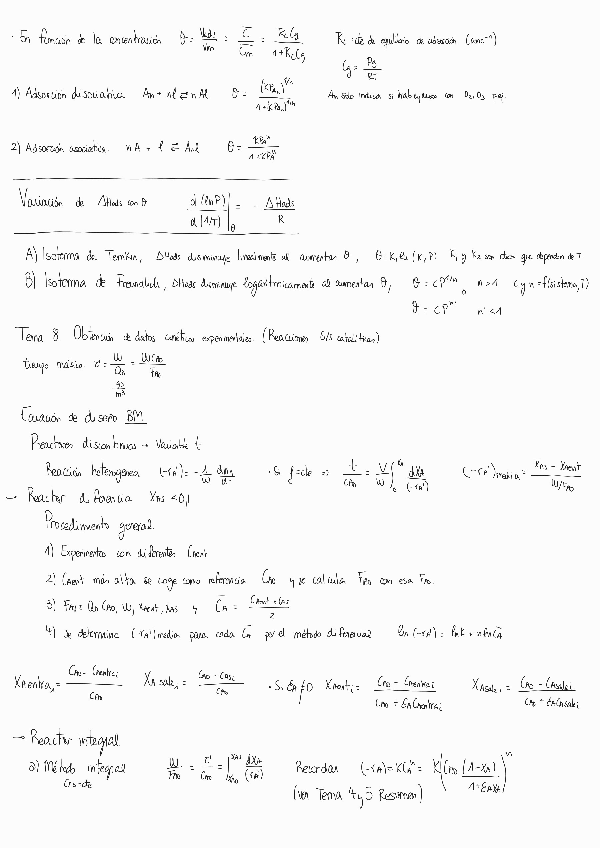 · En función de la concentración θ = Vads/Vm = C̄/C̄m = KcCg/(1+KcCg) Kc: cte de equilibrio de adsorción (conc⁻¹)
Cg = Pg/RT
1) Adsorción disociativa An + nl ⇄ nAl θ = (KPAn)^(1/n)/(1+(KPAn)^(1/n)) An solo indica si hablamos con O2, O3
2) Adsorción asociativa nA + l ⇄ Anl θ = KPA^n/(1+KPA^n)
Variación de ΔHads con θ d(lnP)/d(1/T)|θ = - ΔHads/R
A) Isoterma de Temkin, ΔHads disminuye linealmente al aumentar θ, θ = K1 ln(K2P) K1 y K2 son ctes que dependen de T
B) Isoterma de Freundlich, ΔHads disminuye logarítmicamente al aumentar θ, θ = cP^(1/n) o n>1 c y n = f(sistema, T)
θ = cP^n' n'<1
Tema 8 Obtención de datos cinéticos experimentales (Reacciones S/S catalíticas)
tiempo másico τ' = W/Q0 = WCA0/FA0
Ecuación de diseño BM
Reactores discontinuos → Variable t
Reacción heterogénea (-rA') = -1/W dnA/dt · Si ρ=cte ⇒ t/CA0 = V/W ∫ dXA/(-rA') (-rA')media = (XAs - XAent)/(W/FA0)
→ Reactor diferencial XAs <0,1
Procedimiento general
1) Experimentos con diferentes CAent
2) CAent más alta se coge como referencia CA0 y se calcula FA0 con esa FA0.
3) FA0 = Q0 CA0, W, XAent, XAs y C̄A = (CAent + CAs)/2
4) Se determina (-rA')media para cada C̄A por el método diferencial ln(-rA') = lnK + n lnC̄A
XA entra, i = (CA0 - CAentra i)/CA0 XA sale, i = (CA0 - CAs i)/CA0 · Si εA≠0 XAent i = (CA0 - CAentra i)/(CA0 + εACAentra i) XAsale i = (CA0 - CAsale i)/(CA0 + εACAsale i)
→ Reactor integral
a) Método integral W/FA0 = τ'/CA0 = ∫ dXA/(-rA') Recordar (-rA) = KCA^n = K(CA0 (1-XA)/(1+εAXA))^n
(Ver Tema 4 y 5 Resumen)